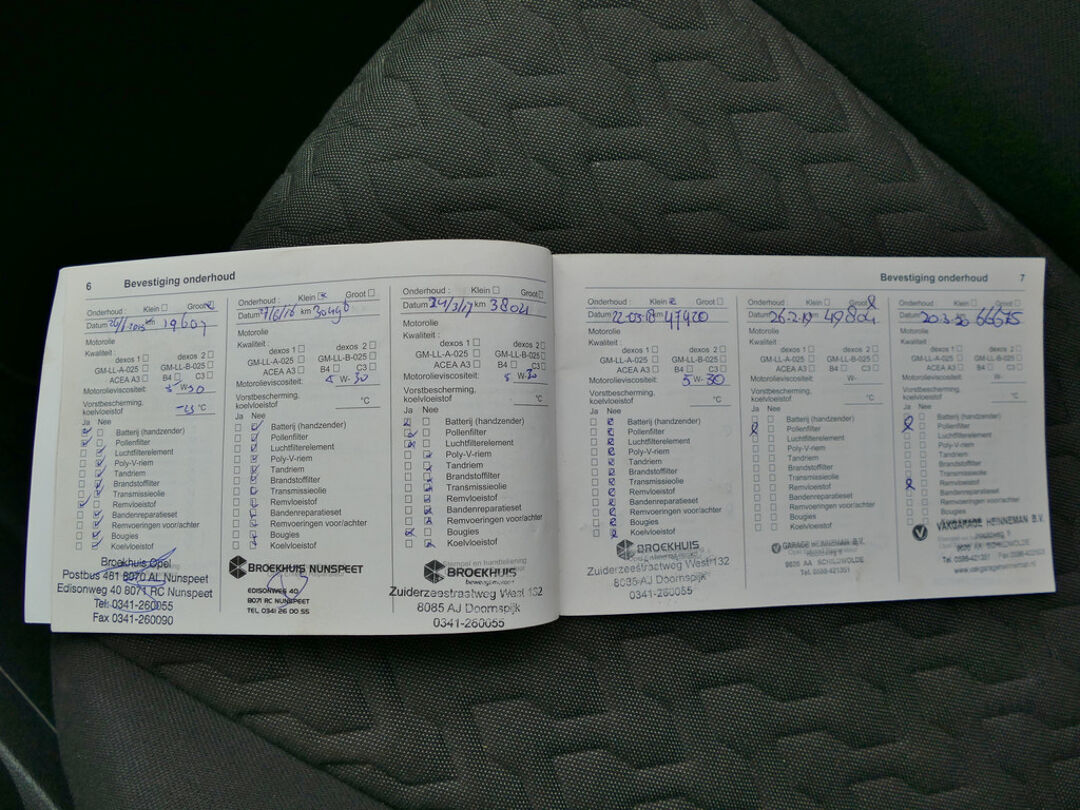 6 Bevestiging onderhoud
Onderhoud : Klein Groot
Datum km 19607
Motorolie
Kwaliteit :
dexos 1 dexos 2
GM-LL-A-025 GM-LL-B-025
ACEA A3 B4 C3
Motorolieviscositeit: 5 W- 30
Vorstbescherming,
koelvloeistof °C
Ja Nee
Batterij (handzender)
Pollenfilter
Luchtfilterelement
Poly-V-riem
Tandriem
Brandstoffilter
Transmissieolie
Remvloeistof
Bandenreparatieset
Remvoeringen voor/achter
Bougies
Koelvloeistof
Broekhuis Opel
Postbus 481 8070 AL Nunspeet
Edisonweg 40 8071 RC Nunspeet
Tel: 0341-260055
Fax 0341-260090
Onderhoud : Klein Groot
Datum km
Motorolie
Kwaliteit :
dexos 1 dexos 2
GM-LL-A-025 GM-LL-B-025
ACEA A3 B4 C3
Motorolieviscositeit: W- 30
Vorstbescherming,
koelvloeistof °C
Ja Nee
Batterij (handzender)
Pollenfilter
Luchtfilterelement
Poly-V-riem
Tandriem
Brandstoffilter
Transmissieolie
Remvloeistof
Bandenreparatieset
Remvoeringen voor/achter
Bougies
Koelvloeistof
BROEKHUIS NUNSPEET
EDISONWEG 40
8071 RC NUNSPEET
TEL. 0341 26 00 55
Onderhoud : Klein Groot
Datum 24/3/17 km 3804
Motorolie
Kwaliteit :
dexos 1 dexos 2
GM-LL-A-025 GM-LL-B-025
ACEA A3 B4 C3
Motorolieviscositeit: 5 W- 30
Vorstbescherming,
koelvloeistof °C
Ja Nee
Batterij (handzender)
Pollenfilter
Luchtfilterelement
Poly-V-riem
Tandriem
Brandstoffilter
Transmissieolie
Remvloeistof
Bandenreparatieset
Remvoeringen voor/achter
Bougies
Koelvloeistof
BROEKHUIS
Zuiderzeestraatweg West 132
8085 AJ Doornspijk
0341-260055
Bevestiging onderhoud 7
Onderhoud : Klein Groot
Datum 22-03-18 km 47920
Motorolie
Kwaliteit :
dexos 1 dexos 2
GM-LL-A-025 GM-LL-B-025
ACEA A3 B4 C3
Motorolieviscositeit: 5 W- 30
Vorstbescherming,
koelvloeistof °C
Ja Nee
Batterij (handzender)
Pollenfilter
Luchtfilterelement
Poly-V-riem
Tandriem
Brandstoffilter
Transmissieolie
Remvloeistof
Bandenreparatieset
Remvoeringen voor/achter
Bougies
Koelvloeistof
BROEKHUIS
Zuiderzeestraatweg West 132
8085 AJ Doornspijk
0341-260055
Onderhoud : Klein Groot
Datum 26-2-19 km 49804
Motorolie
Kwaliteit :
dexos 1 dexos 2
GM-LL-A-025 GM-LL-B-025
ACEA A3 B4 C3
Motorolieviscositeit: W-
Vorstbescherming,
koelvloeistof °C
Ja Nee
Batterij (handzender)
Pollenfilter
Luchtfilterelement
Poly-V-riem
Tandriem
Brandstoffilter
Transmissieolie
Remvloeistof
Bandenreparatieset
Remvoeringen voor/achter
Bougies
Koelvloeistof
GARAGE HEINNEMAN B.V.
9626 AA SCHILDWOLDE
Tel. 0598-421351
Onderhoud : Klein Groot
Datum km
Motorolie
Kwaliteit :
dexos 1 dexos 2
GM-LL-A-025 GM-LL-B-025
ACEA A3 B4 C3
Motorolieviscositeit: W-
Vorstbescherming,
koelvloeistof °C
Ja Nee
Batterij (handzender)
Pollenfilter
Luchtfilterelement
Poly-V-riem
Tandriem
Brandstoffilter
Transmissieolie
Remvloeistof
Bandenreparatieset
Remvoeringen voor/achter
Bougies
Koelvloeistof
VAKGARAGE HEINNEMAN B.V.
9626 AA SCHILDWOLDE
Tel. 0598-421351
www.vakgarageheinneman.nl